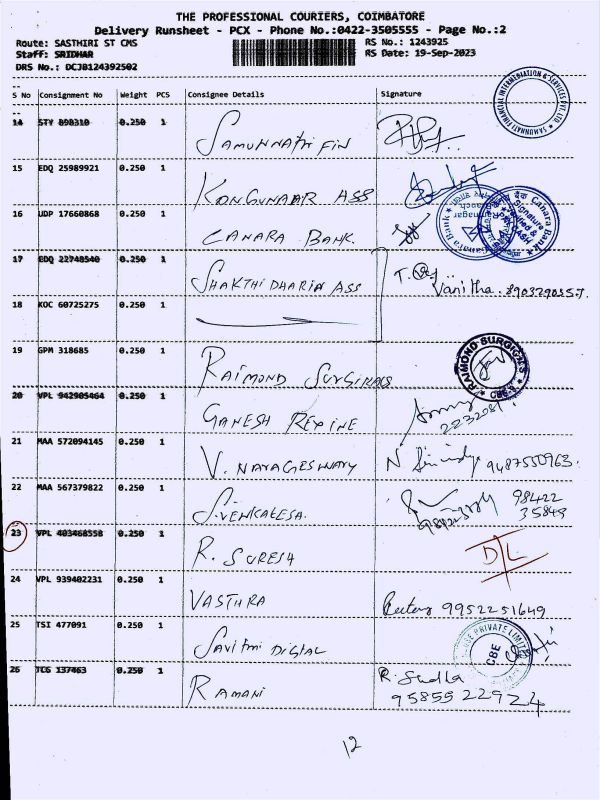 THE PROFESSIONAL COURIERS, COIMBATORE
Delivery Runsheet - PCX - Phone No.:0422-3505555 - Page No.:2
Route: SASTHIRI ST CMS
RS No.: 1243925
Staff: SRIDHAR
RS Date: 19-Sep-2023
DRS No.: DCJB124392502
S No Consignment No Weight PCS Consignee Details Signature
14 STY 898310 0.250 1 SAMUNNATHI FIN
15 EDQ 25989921 0.250 1 KONGUNAAR ASS
16 UDP 17660868 0.250 1 CANARA BANK.
17 EDQ 22748540 0.250 1 SHAKTHI DHARIN ASS
Vanitha.
18 KOC 60725275 0.250 1
19 GPM 318685 0.250 1 RAIMOND SURGICALS
RAIMOND SURGICALS
20 VPL 942905464 0.250 1 GANESH REXINE
21 MAA 572094145 0.250 1 V. NAYAGESWARY 9487550963.
22 MAA 567379822 0.250 1 S. VENKATESA. 98422
35849
23 VPL 403468558 0.250 1 R. SURESH D/L
24 VPL 939402231 0.250 1 VASTHRA 9952251649
25 TSI 477091 0.250 1 SAVITHRI DIGITAL
CBE
26 TCG 137463 0.250 1 RAMANI R. Sudha
95855 22924
12